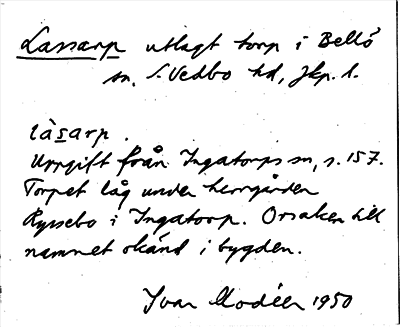 Lassarp utlagt torp i Bellö
sn, S. Vedbo hd, Jkp. l.
làsarp.
Uppgift från Ingatorps sn, s. 157.
Torpet låg under herrgården
Ryssebo i Ingatorp. Orsaken till
namnet okänd i bygden.
Ivar Modéer 1950